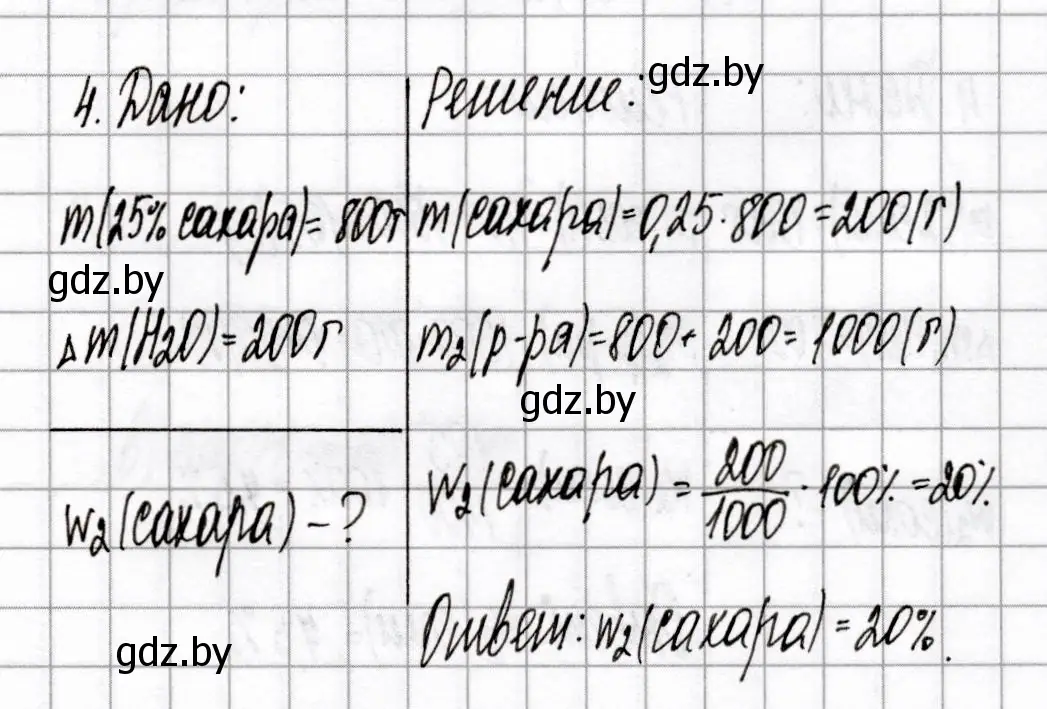 4. Дано:
m(25% сахара)=800г
gdz.by
Δm(H2O)=200г
w2(сахара) - ?
gdz.by
Решение:
gdz.by
m(сахара)=0,25·800=200(г)
m2(р-ра)=800+200=1000(г)
gdz.by
w2(сахара) = 200/1000 · 100% = 20%
Ответ: w2(сахара)=20%.